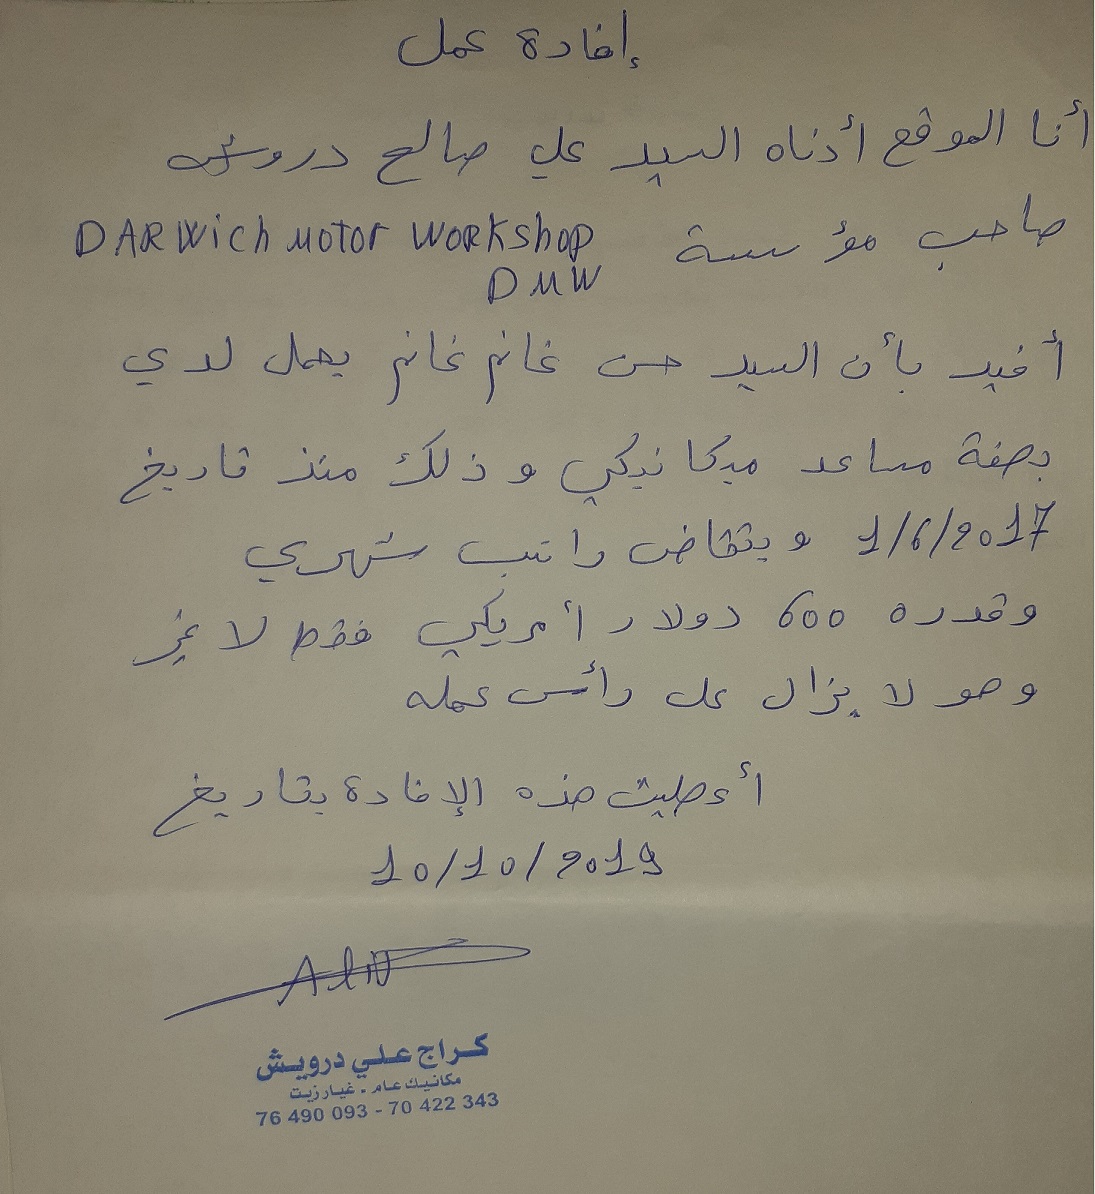 إفادة عمل
أنا الموقع أدناه السيد علي صالح درويش
صاحب مؤسسة DARWich MOTOR WORKSHOP
DMW
أفيد بأن السيد حسن غانم غانم يعمل لدي
بصفة مساعد ميكانيكي و ذلك منذ تاريخ
1/6/2017 و يتقاضى راتب شهري
و قدره 600 دولار أمريكي فقط لا غير
و هو لا يزال على رأس عمله
أعطيت هذه الإفادة بتاريخ
10/10/2019
كراج علي درويش
مكانيك عام - غيار زيت
76 490 093 - 70 422 343